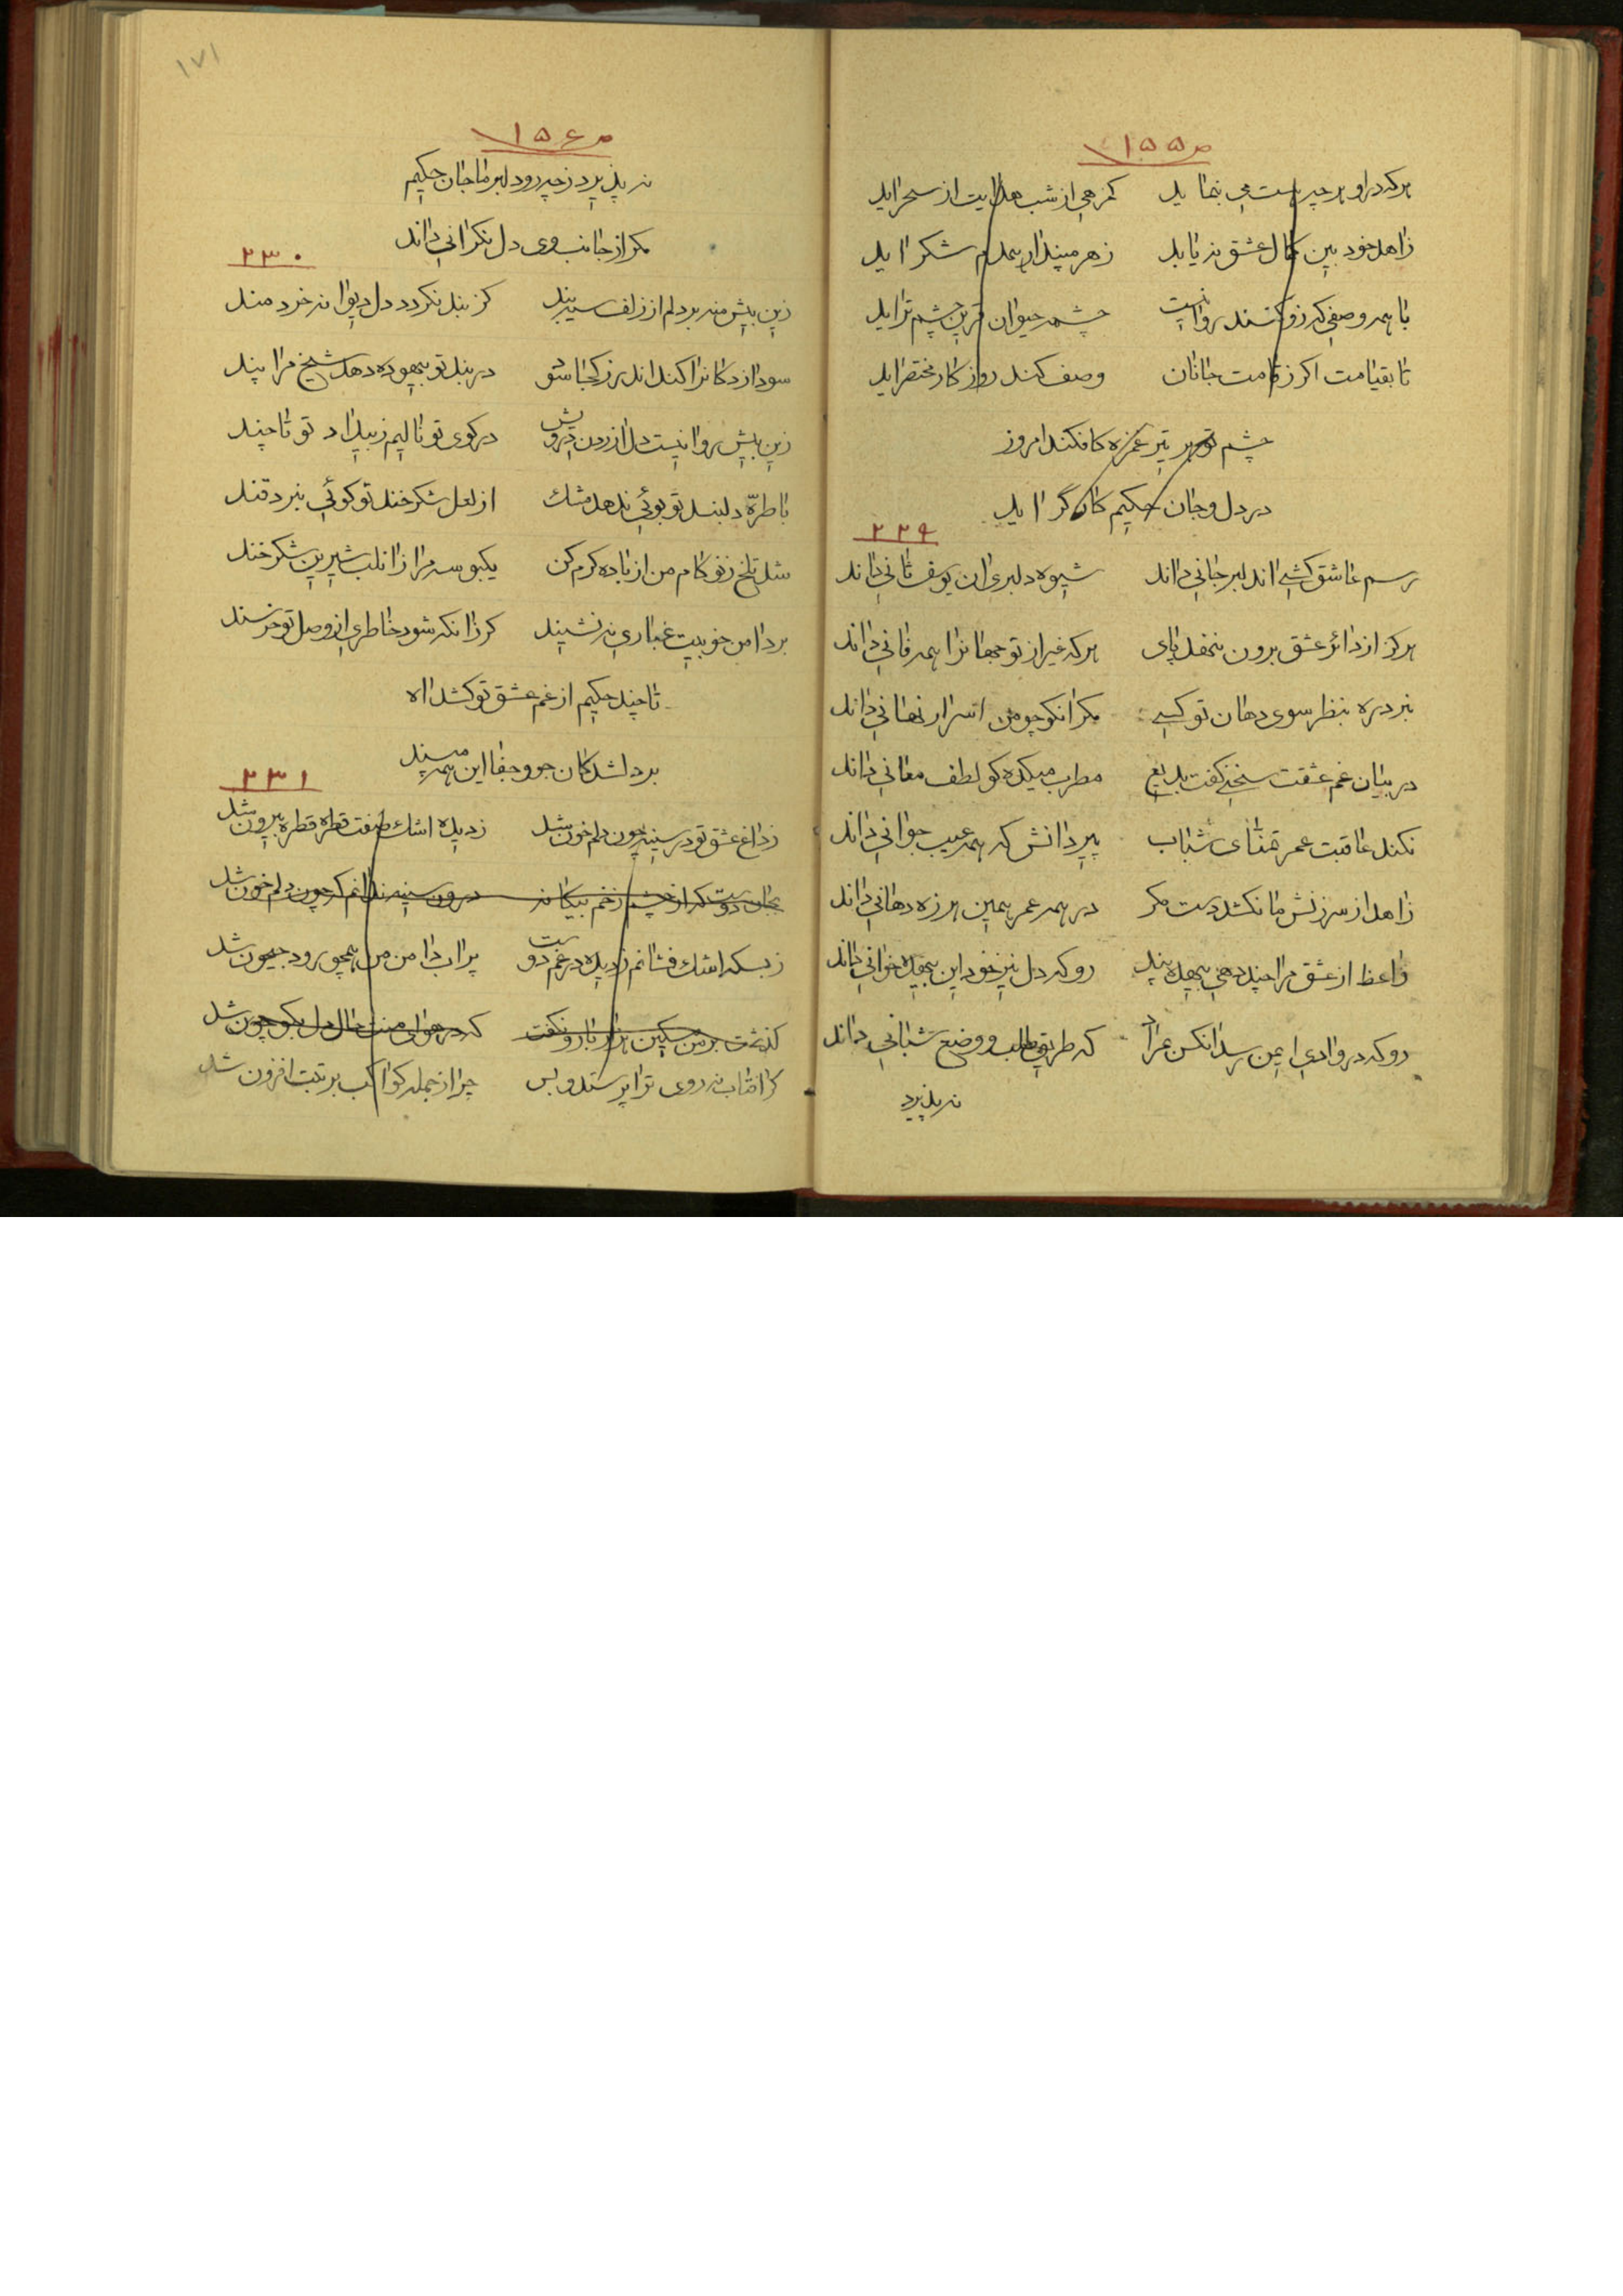 ص۱۵۵
هرکه در او هرچه هست می بنماید کمرهی از شب هدایت از سحر اید
زاهد خود بین کمال عشق نه یابد زهر مپندار همدم شکر اید
با همه وصفی که زو کنند روانیست چشمه حیوان قرین چشم تر اید
تا بقیامت اکر ز قامت جانان وصف کند روزکار مختصر اید
چشم تو هر تیر غمزه کافکند امروز
در دل و جان حکیم کارگر اید
۲۲۹
رسم عاشق کشی اندلبر جانی داند شیوه دلبری ان یوسف ثانی داند
هرکز از دائره عشق برون ننهد پای هرکه غیر از تو جهانرا همه فانی داند
نبرد ره بنظر سوی دهان تو کسی مکر انکو چو من اسرار نهانی داند
در بیان غم عشقت سخنی کفت بدیع مطرب میکده کو لطف معانی داند
نکند عاقبت عمر تمنای شباب پیر دانش که همه عیب جوانی داند
زاهد از سرزنش ما نکشد دست مکر در همه عمر همین هرزه دهانی داند
واعظ از عشق مرا چند دهی بیهده پند رو که دل نیز خود این بیهده خوانی داند
رو که در وادی ایمن رسد انکس بمراد که طریق طلب و وضع شبانی داند
نه پذیرد
۱۷۱
ص۱۵۶
نه پذیرد ز چه رو دلبر ما جان حکیم
مکر از جانب وی دل نکرانی داند
۲۳۰
زین بیش منه بر دلم از زلف سیه بند کز بند نکردد دل دیوانه خردمند
سودازدکانرا کند اندرز کجا سود در بند تو بیهوده دهد شیخ مرا پند
زین بیش روا نیست دل ازردن درویش در کوی تو نالیم ز بیداد تو تا چند
با طره دلبند تو بوئی ندهد مشک از لعل شکرخند تو کوئی نبرد قند
شد تلخ ز تو کام من از باده کرم کن یکبوسه مرا زانلب شیرین شکرخند
بر دامن خوبیت غباری نه نشیند کر زانکه شود خاطری از وصل تو خرسند
تا چند حکیم از غم عشق تو کشد اه
بر دلشدکان جور و جفا این همه مپسند
۲۳۱
ز داغ عشق تو در سینه چون دلم خون شد ز دیده اشک صفت قطره قطره بیرون شد
بجان دوست که از چشم زخم بیکانه درون سینه ندانم که چون دلم خون شد
ز بسکه اشک فشانم ز دیده در غم دوست پر اب دامن من همچو رود جیحون شد
کذشت بر من مسکین هزار بار و نکفت که در هوای منت حال دل بکو چون شد
کر افتاب نه روی ترا پرستد و بس چرا ز جمله کواکب برتبت افزون شد